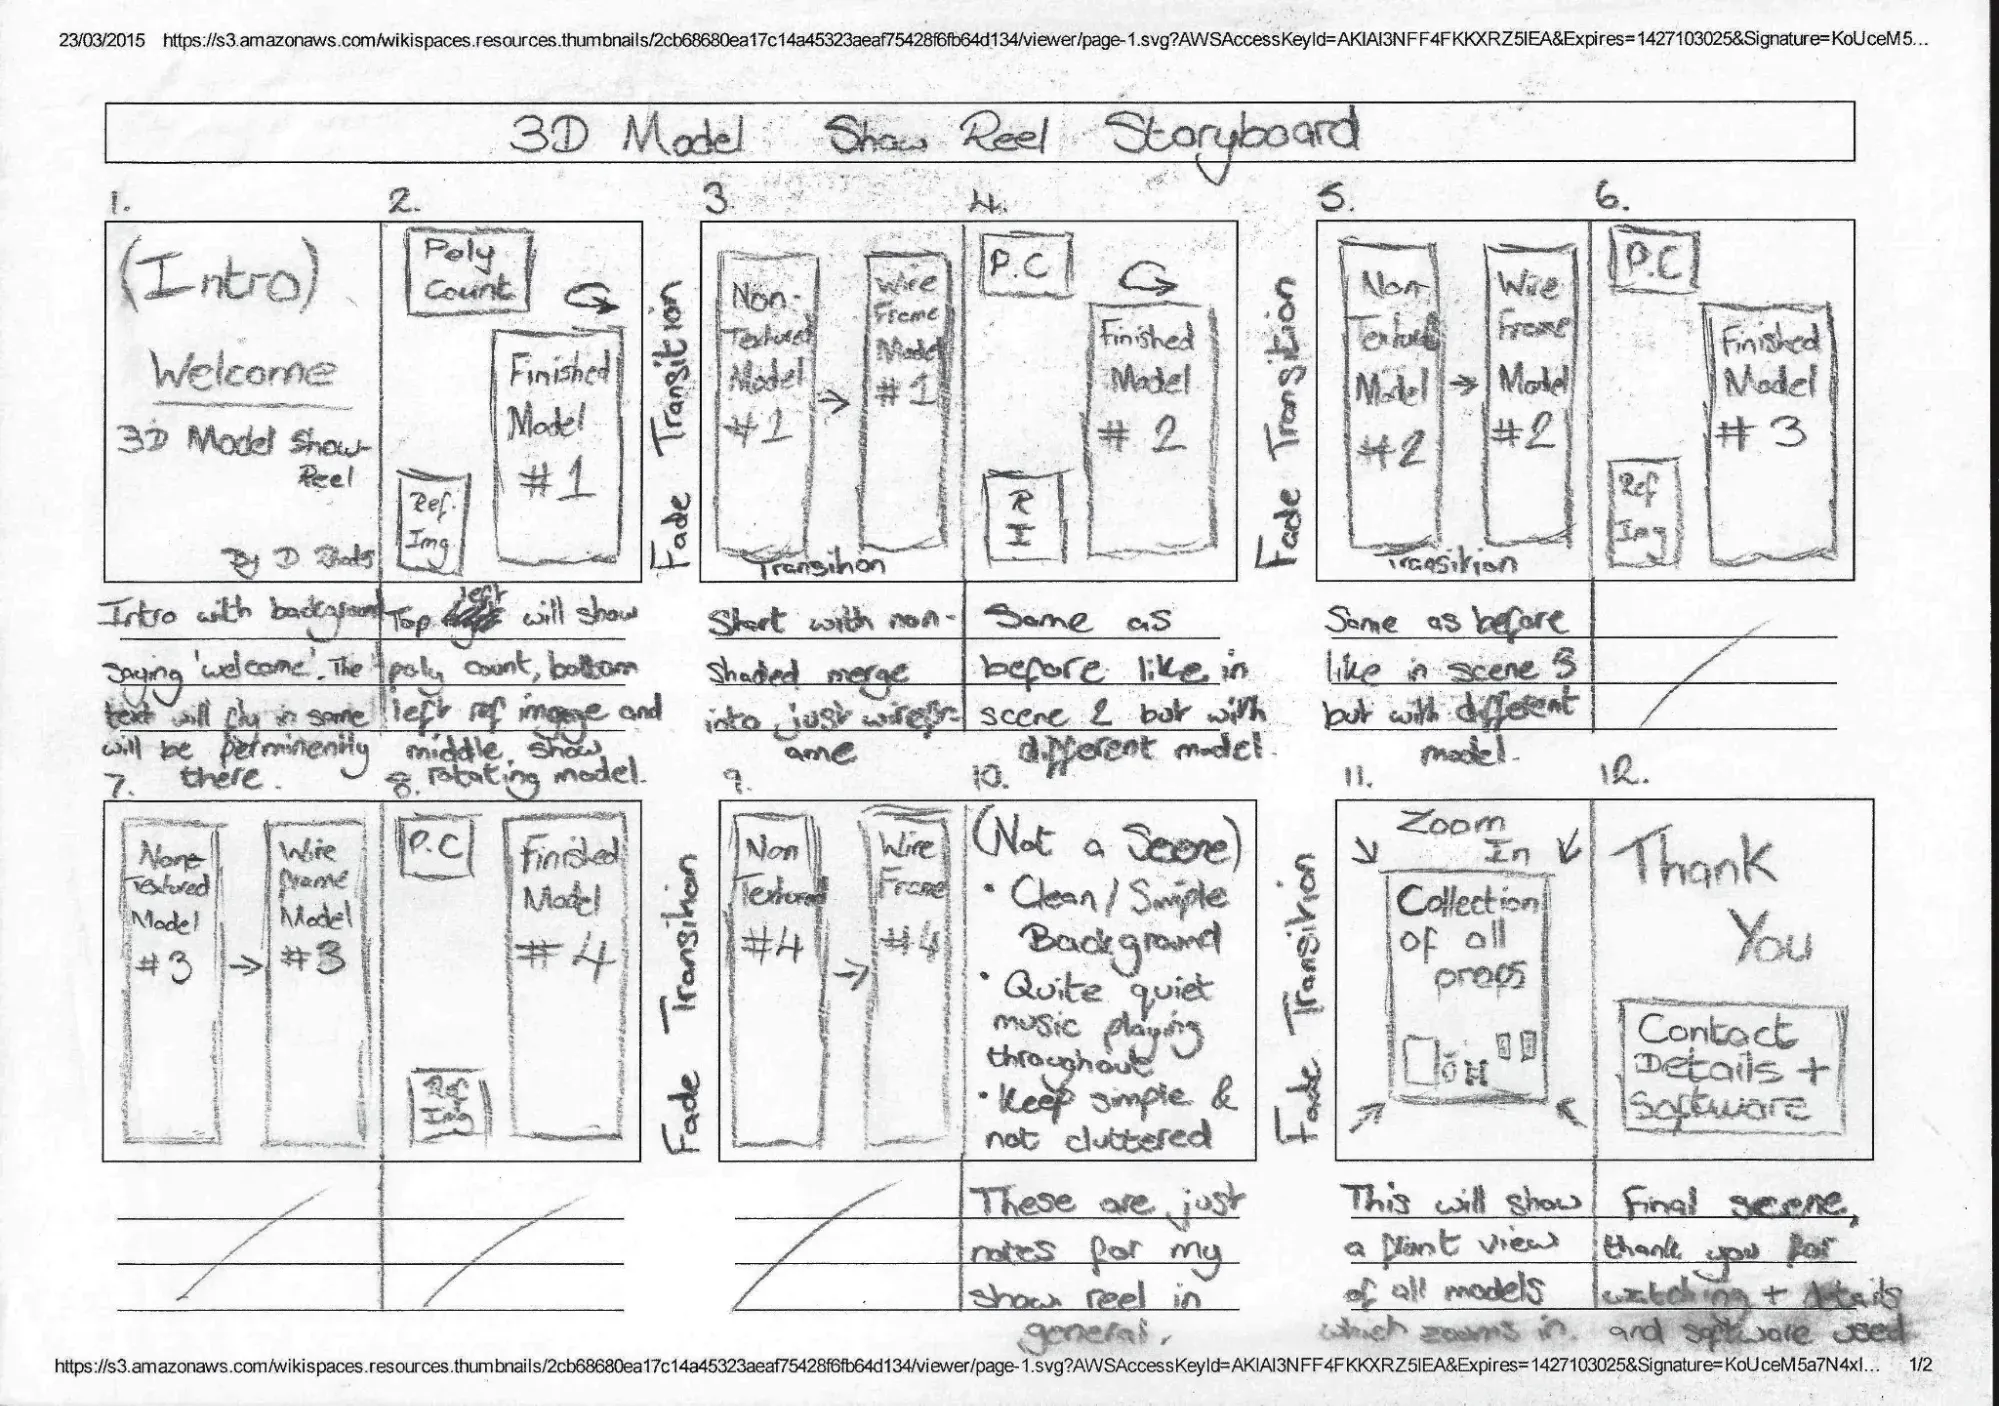 23/03/2015 https://s3.amazonaws.com/wikispaces.resources.thumbnails/2cb68680ea17c14a45323aeaf75428f6fb64d134/viewer/page-1.svg?AWSAccessKeyId=AKIAI3NFF4FKKXRZ5IEA&Expires=1427103025&Signature=KoUceM5...
3D Model Show Reel Storyboard
1.
(Intro)
Welcome
3D Model Show
Reel
By D
Intro with background
saying 'welcome'. The
text will fly in some
will be perminently
there.
2.
Poly
Count
Finished
Model
#1
Ref.
Img
Top left will show
poly count, bottom
left ref imgage and
middle, show
rotating model.
Fade Transition
3.
Non-
Textured
Model
#1
→
Wire
Frame
Model
#1
Transition
Start with non-
shaded merge
into just wirefr-
ame
4.
P.C
Finished
Model
# 2
R
I
Same as
before like in
scene 2 but with
different model.
Fade Transition
5.
Non
Textured
Model
#2
→
Wire
Frame
Model
#2
Transition
Same as before
like in scene 3
but with different
model.
6.
P.C
Finished
Model
# 3
Ref
Img
7.
Non
Textured
Model
#3
→
Wire
Frame
Model
#3
8.
P.C
Finished
Model
# 4
Ref
Img
Fade Transition
9.
Non
Textured
#4
→
Wire
Frame
#4
10.
(Not a Scene)
• Clean/Simple
Background
• Quite quiet
music playing
throughout
• Keep simple &
not cluttered
These are just
notes for my
show reel in
general.
Fade Transition
11.
Zoom
In
Collection
of all
props
This will show
a plant view
of all models
which zooms in.
12.
Thank
You
Contact
Details +
Software
Final scene,
thank you for
watching + details
and software used
https://s3.amazonaws.com/wikispaces.resources.thumbnails/2cb68680ea17c14a45323aeaf75428f6fb64d134/viewer/page-1.svg?AWSAccessKeyId=AKIAI3NFF4FKKXRZ5IEA&Expires=1427103025&Signature=KoUceM5a7N4xI... 1/2